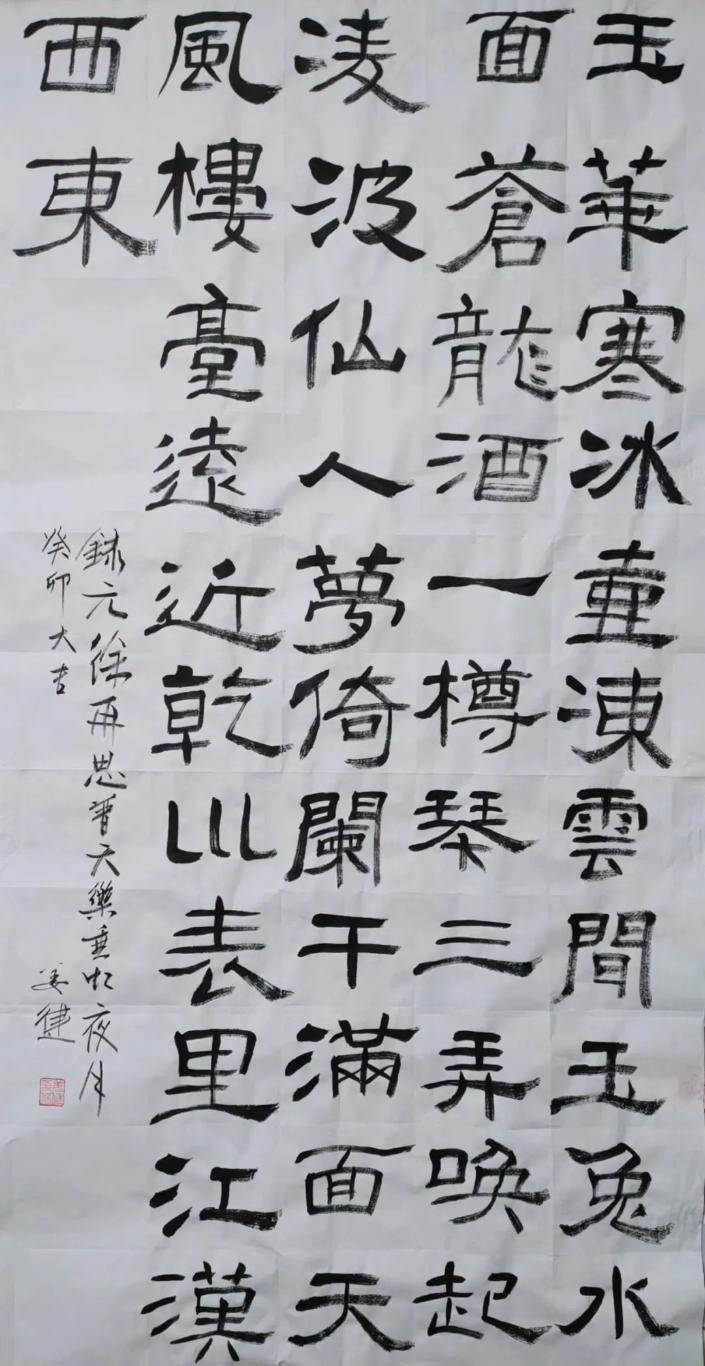 玉華寒冰壺凍雲間玉兔水
面蒼龍酒一樽琴三弄喚起
凌波仙人夢倚闌干滿面天
風樓臺遠近乾川表里江漢
西東
錄元徐再思普天樂垂虹夜月
癸卯大吉